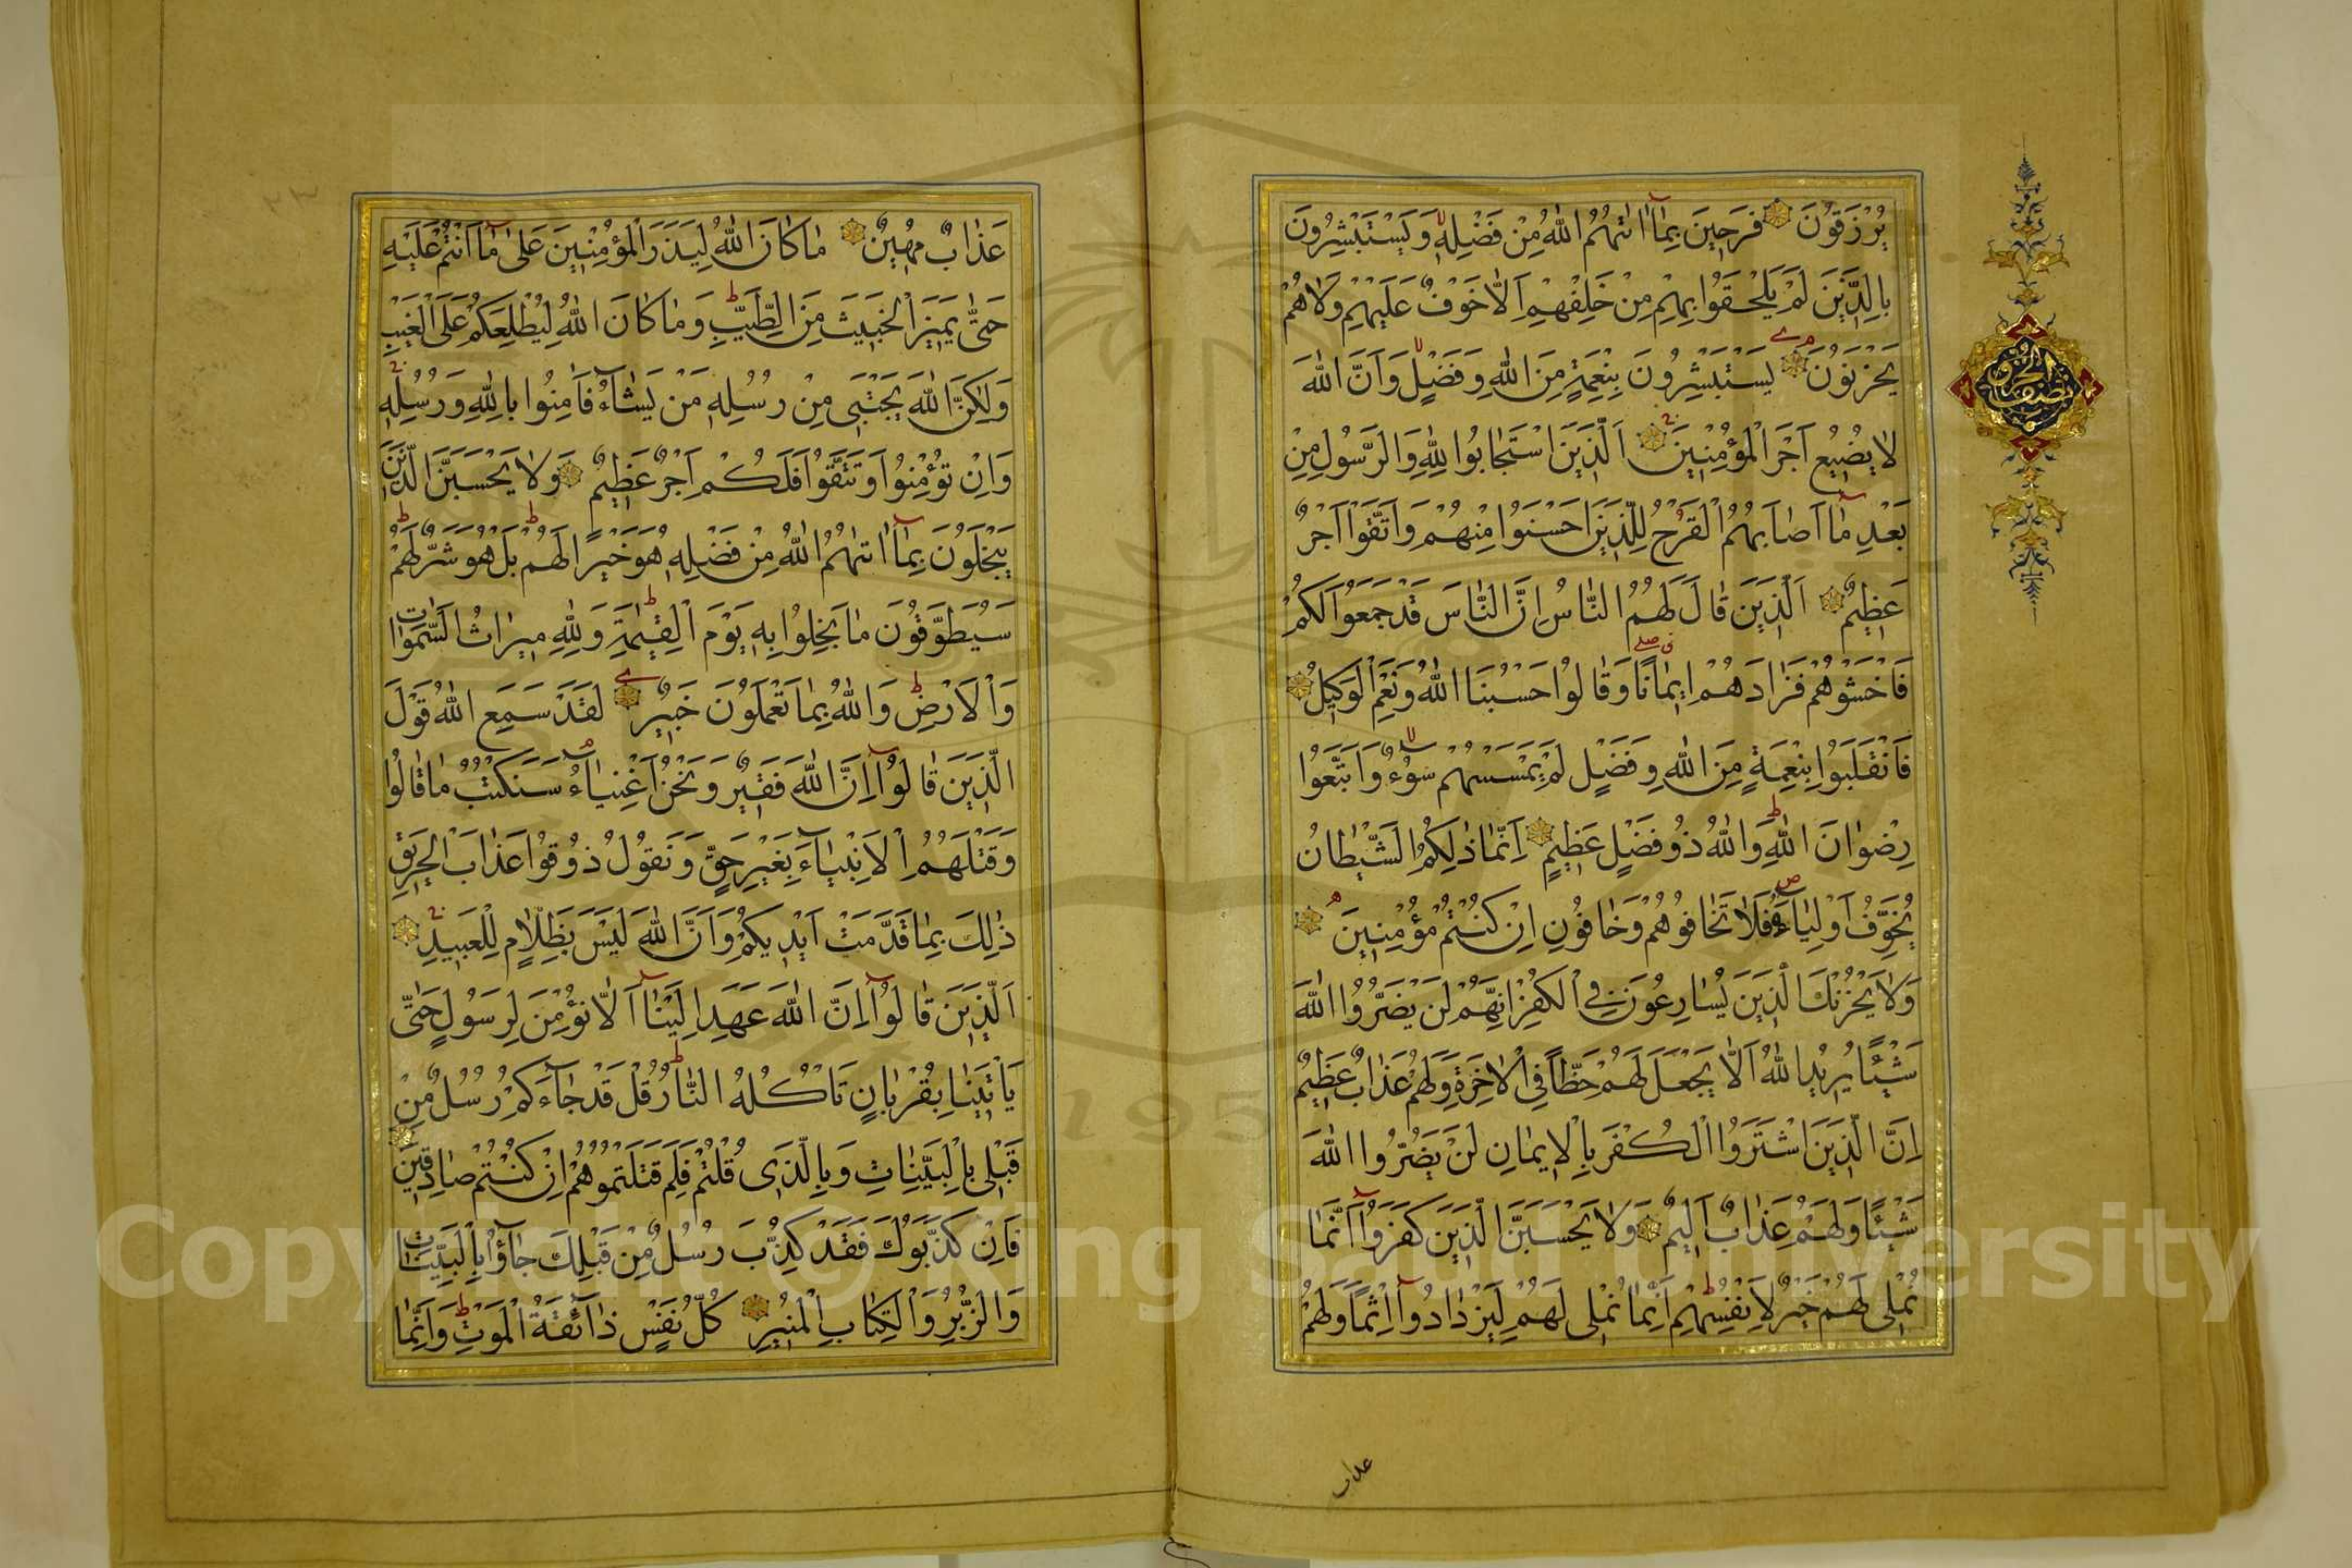 يُرْزَقُونَ فَرِحِينَ بِمَا اٰتٰهُمُ اللهُ مِنْ فَضْلِهِ وَيَسْتَبْشِرُونَ
بِالَّذِينَ لَمْ يَلْحَقُوا بِهِمْ مِنْ خَلْفِهِمْ اَلَّا خَوْفٌ عَلَيْهِمْ وَلَا هُمْ
يَحْزَنُونَ يَسْتَبْشِرُونَ بِنِعْمَةٍ مِنَ اللهِ وَفَضْلٍ وَاَنَّ اللهَ
لَا يُضِيعُ اَجْرَ الْمُؤْمِنِينَ اَلَّذِينَ اسْتَجَابُوا لِلّٰهِ وَالرَّسُولِ مِنْ
بَعْدِ مَا اَصَابَهُمُ الْقَرْحُ لِلَّذِينَ اَحْسَنُوا مِنْهُمْ وَاتَّقَوْا اَجْرٌ
عَظِيمٌ اَلَّذِينَ قَالَ لَهُمُ النَّاسُ اِنَّ النَّاسَ قَدْ جَمَعُوا لَكُمْ
فَاخْشَوْهُمْ فَزَادَهُمْ اِيمَانًا وَقَالُوا حَسْبُنَا اللهُ وَنِعْمَ الْوَكِيلُ
فَانْقَلَبُوا بِنِعْمَةٍ مِنَ اللهِ وَفَضْلٍ لَمْ يَمْسَسْهُمْ سُوءٌ وَاتَّبَعُوا
رِضْوَانَ اللهِ وَاللهُ ذُو فَضْلٍ عَظِيمٍ اِنَّمَا ذٰلِكُمُ الشَّيْطَانُ
يُخَوِّفُ اَوْلِيَاءَهُ فَلَا تَخَافُوهُمْ وَخَافُونِ اِنْ كُنْتُمْ مُؤْمِنِينَ
وَلَا يَحْزُنْكَ الَّذِينَ يُسَارِعُونَ فِي الْكُفْرِ اِنَّهُمْ لَنْ يَضُرُّوا اللهَ
شَيْئًا يُرِيدُ اللهُ اَلَّا يَجْعَلَ لَهُمْ حَظًّا فِي الْاٰخِرَةِ وَلَهُمْ عَذَابٌ عَظِيمٌ
اِنَّ الَّذِينَ اشْتَرَوُا الْكُفْرَ بِالْاِيمَانِ لَنْ يَضُرُّوا اللهَ
شَيْئًا وَلَهُمْ عَذَابٌ اَلِيمٌ وَلَا يَحْسَبَنَّ الَّذِينَ كَفَرُوا اَنَّمَا
نُمْلِي لَهُمْ خَيْرٌ لِاَنْفُسِهِمْ اِنَّمَا نُمْلِي لَهُمْ لِيَزْدَادُوا اِثْمًا وَلَهُمْ
عذاب
عَذَابٌ مُهِينٌ مَا كَانَ اللهُ لِيَذَرَ الْمُؤْمِنِينَ عَلٰى مَا اَنْتُمْ عَلَيْهِ
حَتّٰى يَمِيزَ الْخَبِيثَ مِنَ الطَّيِّبِ وَمَا كَانَ اللهُ لِيُطْلِعَكُمْ عَلَى الْغَيْبِ
وَلٰكِنَّ اللهَ يَجْتَبِي مِنْ رُسُلِهِ مَنْ يَشَاءُ فَاٰمِنُوا بِاللهِ وَرُسُلِهِ
وَاِنْ تُؤْمِنُوا وَتَتَّقُوا فَلَكُمْ اَجْرٌ عَظِيمٌ وَلَا يَحْسَبَنَّ الَّذِينَ
يَبْخَلُونَ بِمَا اٰتٰهُمُ اللهُ مِنْ فَضْلِهِ هُوَ خَيْرًا لَهُمْ بَلْ هُوَ شَرٌّ لَهُمْ
سَيُطَوَّقُونَ مَا بَخِلُوا بِهِ يَوْمَ الْقِيٰمَةِ وَلِلّٰهِ مِيرَاثُ السَّمٰوَاتِ
وَالْاَرْضِ وَاللهُ بِمَا تَعْمَلُونَ خَبِيرٌ لَقَدْ سَمِعَ اللهُ قَوْلَ
الَّذِينَ قَالُوا اِنَّ اللهَ فَقِيرٌ وَنَحْنُ اَغْنِيَاءُ سَنَكْتُبُ مَا قَالُوا
وَقَتْلَهُمُ الْاَنْبِيَاءَ بِغَيْرِ حَقٍّ وَنَقُولُ ذُوقُوا عَذَابَ الْحَرِيقِ
ذٰلِكَ بِمَا قَدَّمَتْ اَيْدِيكُمْ وَاَنَّ اللهَ لَيْسَ بِظَلَّامٍ لِلْعَبِيدِ
اَلَّذِينَ قَالُوا اِنَّ اللهَ عَهِدَ اِلَيْنَا اَلَّا نُؤْمِنَ لِرَسُولٍ حَتّٰى
يَأْتِيَنَا بِقُرْبَانٍ تَأْكُلُهُ النَّارُ قُلْ قَدْ جَاءَكُمْ رُسُلٌ مِنْ
قَبْلِي بِالْبَيِّنَاتِ وَبِالَّذِي قُلْتُمْ فَلِمَ قَتَلْتُمُوهُمْ اِنْ كُنْتُمْ صَادِقِينَ
فَاِنْ كَذَّبُوكَ فَقَدْ كُذِّبَ رُسُلٌ مِنْ قَبْلِكَ جَاؤُا بِالْبَيِّنَاتِ
وَالزُّبُرِ وَالْكِتَابِ الْمُنِيرِ كُلُّ نَفْسٍ ذَائِقَةُ الْمَوْتِ وَاِنَّمَا
Copyright © King Saud University
195